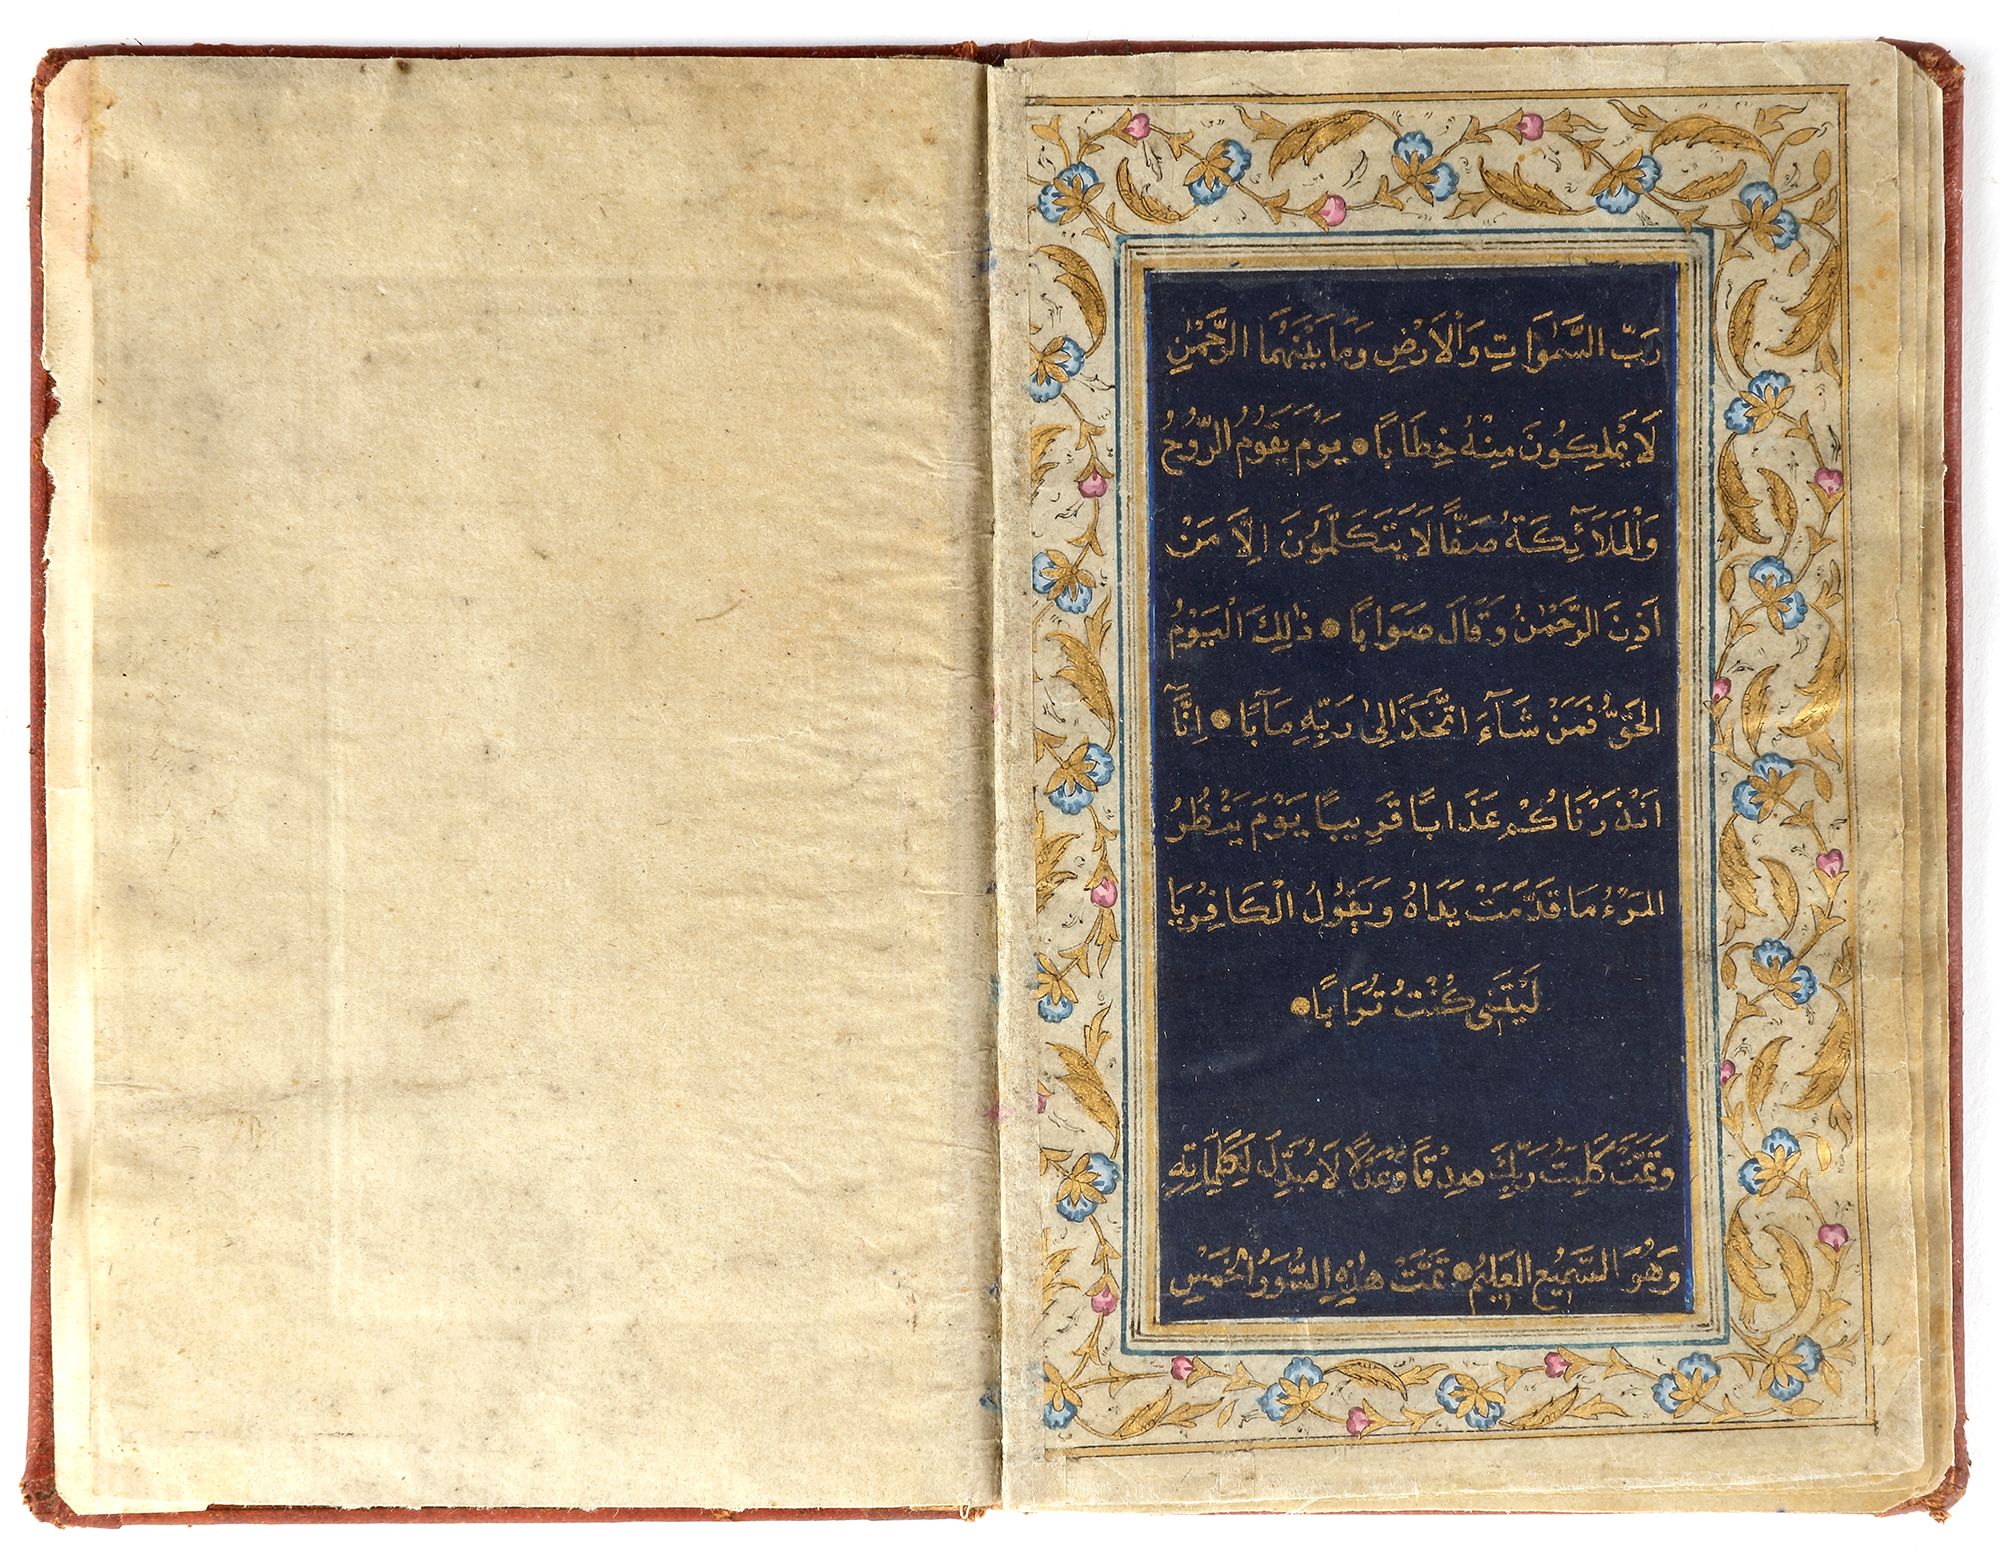 رَبِّ السَّمٰوَاتِ وَالْاَرْضِ وَمَا بَيْنَهُمَا الرَّحْمٰنِ
لَا يَمْلِكُونَ مِنْهُ خِطَابًا يَوْمَ يَقُومُ الرُّوحُ
وَالْمَلَآئِكَةُ صَفًّا لَا يَتَكَلَّمُونَ اِلَّا مَنْ
اَذِنَ الرَّحْمٰنُ وَقَالَ صَوَابًا ذٰلِكَ الْيَوْمُ
الْحَقُّ فَمَنْ شَآءَ اتَّخَذَ اِلٰى رَبِّهِ مَاٰبًا اِنَّآ
اَنْذَرْنَاكُمْ عَذَابًا قَرِيبًا يَوْمَ يَنْظُرُ
الْمَرْءُ مَا قَدَّمَتْ يَدَاهُ وَيَقُولُ الْكَافِرُ يَا
لَيْتَنٖى كُنْتُ تُرَابًا
وَتَمَّتْ كَلِمَتُ رَبِّكَ صِدْقًا وَعَدْلًا لَا مُبَدِّلَ لِكَلِمَاتِهِ
وَهُوَ السَّمِيعُ الْعَلِيمُ تَمَّتْ هٰذِهِ السُّوَرُ الْخَمْسِ